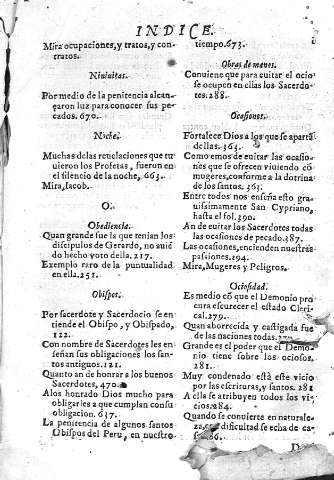 INDICE.
Mira ocupaciones, y tratos, y con-
tratos.
Niniuitas.
Por medio de la penitencia alcan-
çaron luz para conocer sus pe-
cados. 670.
Noche.
Muchas delas reuelaciones que tu-
uieron los Profetas, fueron en
el silencio de la noche, 663.
Mira, Iacob.
O.
Obediencia.
Quan grande fue la que tenian los
discipulos de Gerardo, no auié
do hecho voto della. 217.
Exemplo raro de la puntualidad
en ella. 251.
Obispos.
Por sacerdote y Sacerdocio se en-
tiende el Obispo, y Obispado,
122.
Con nombre de Sacerdotes les en-
señan sus obligaciones los san-
tos antiguos. 121.
Quanto an de honrar a los buenos
Sacerdotes, 470.
A los honrado Dios mucho para
obligarles a que cumplan con su
obligacion. 637.
La penitencia de algunos santos
Obispos del Peru, en nuestro
tiempo. 673.
Obras de manos.
Conuiene que para euitar el ocio
se ocupen en ellas los Sacerdo-
tes. 288.
Ocasiones.
Fortalece Dios a los que se apartá
dellas. 363.
Como emos de euitar las ocasio-
nes que se ofrecen viuiendo có
mugeres, conforme a la dotrina
de los santos. 363.
Entre todos nos enseña esto gra-
uissimamente San Cypriano,
hasta el fol. 390.
An de euitar los Sacerdotes todas
las ocasiones de pecado. 387.
Las ocasiones, encienden nuestras
passiones. 194.
Mira, Mugeres y Peligros.
Ociosidad.
Es medio có que el Demonio pro
cura escurecer el estado Cleri-
cal. 279.
Quan aborrecida y castigada fue
de las naciones todas.
Grande es el poder que el Demo-
nio tiene sobre los ociosos.
281.
Muy condenado está este vicio
por las escrituras, y santos. 281
A ella se atribuyen todos los vi-
cios. 284.
Quando se conuierte en naturale-
za, có dificultad se echa de ca-
sa. 286.